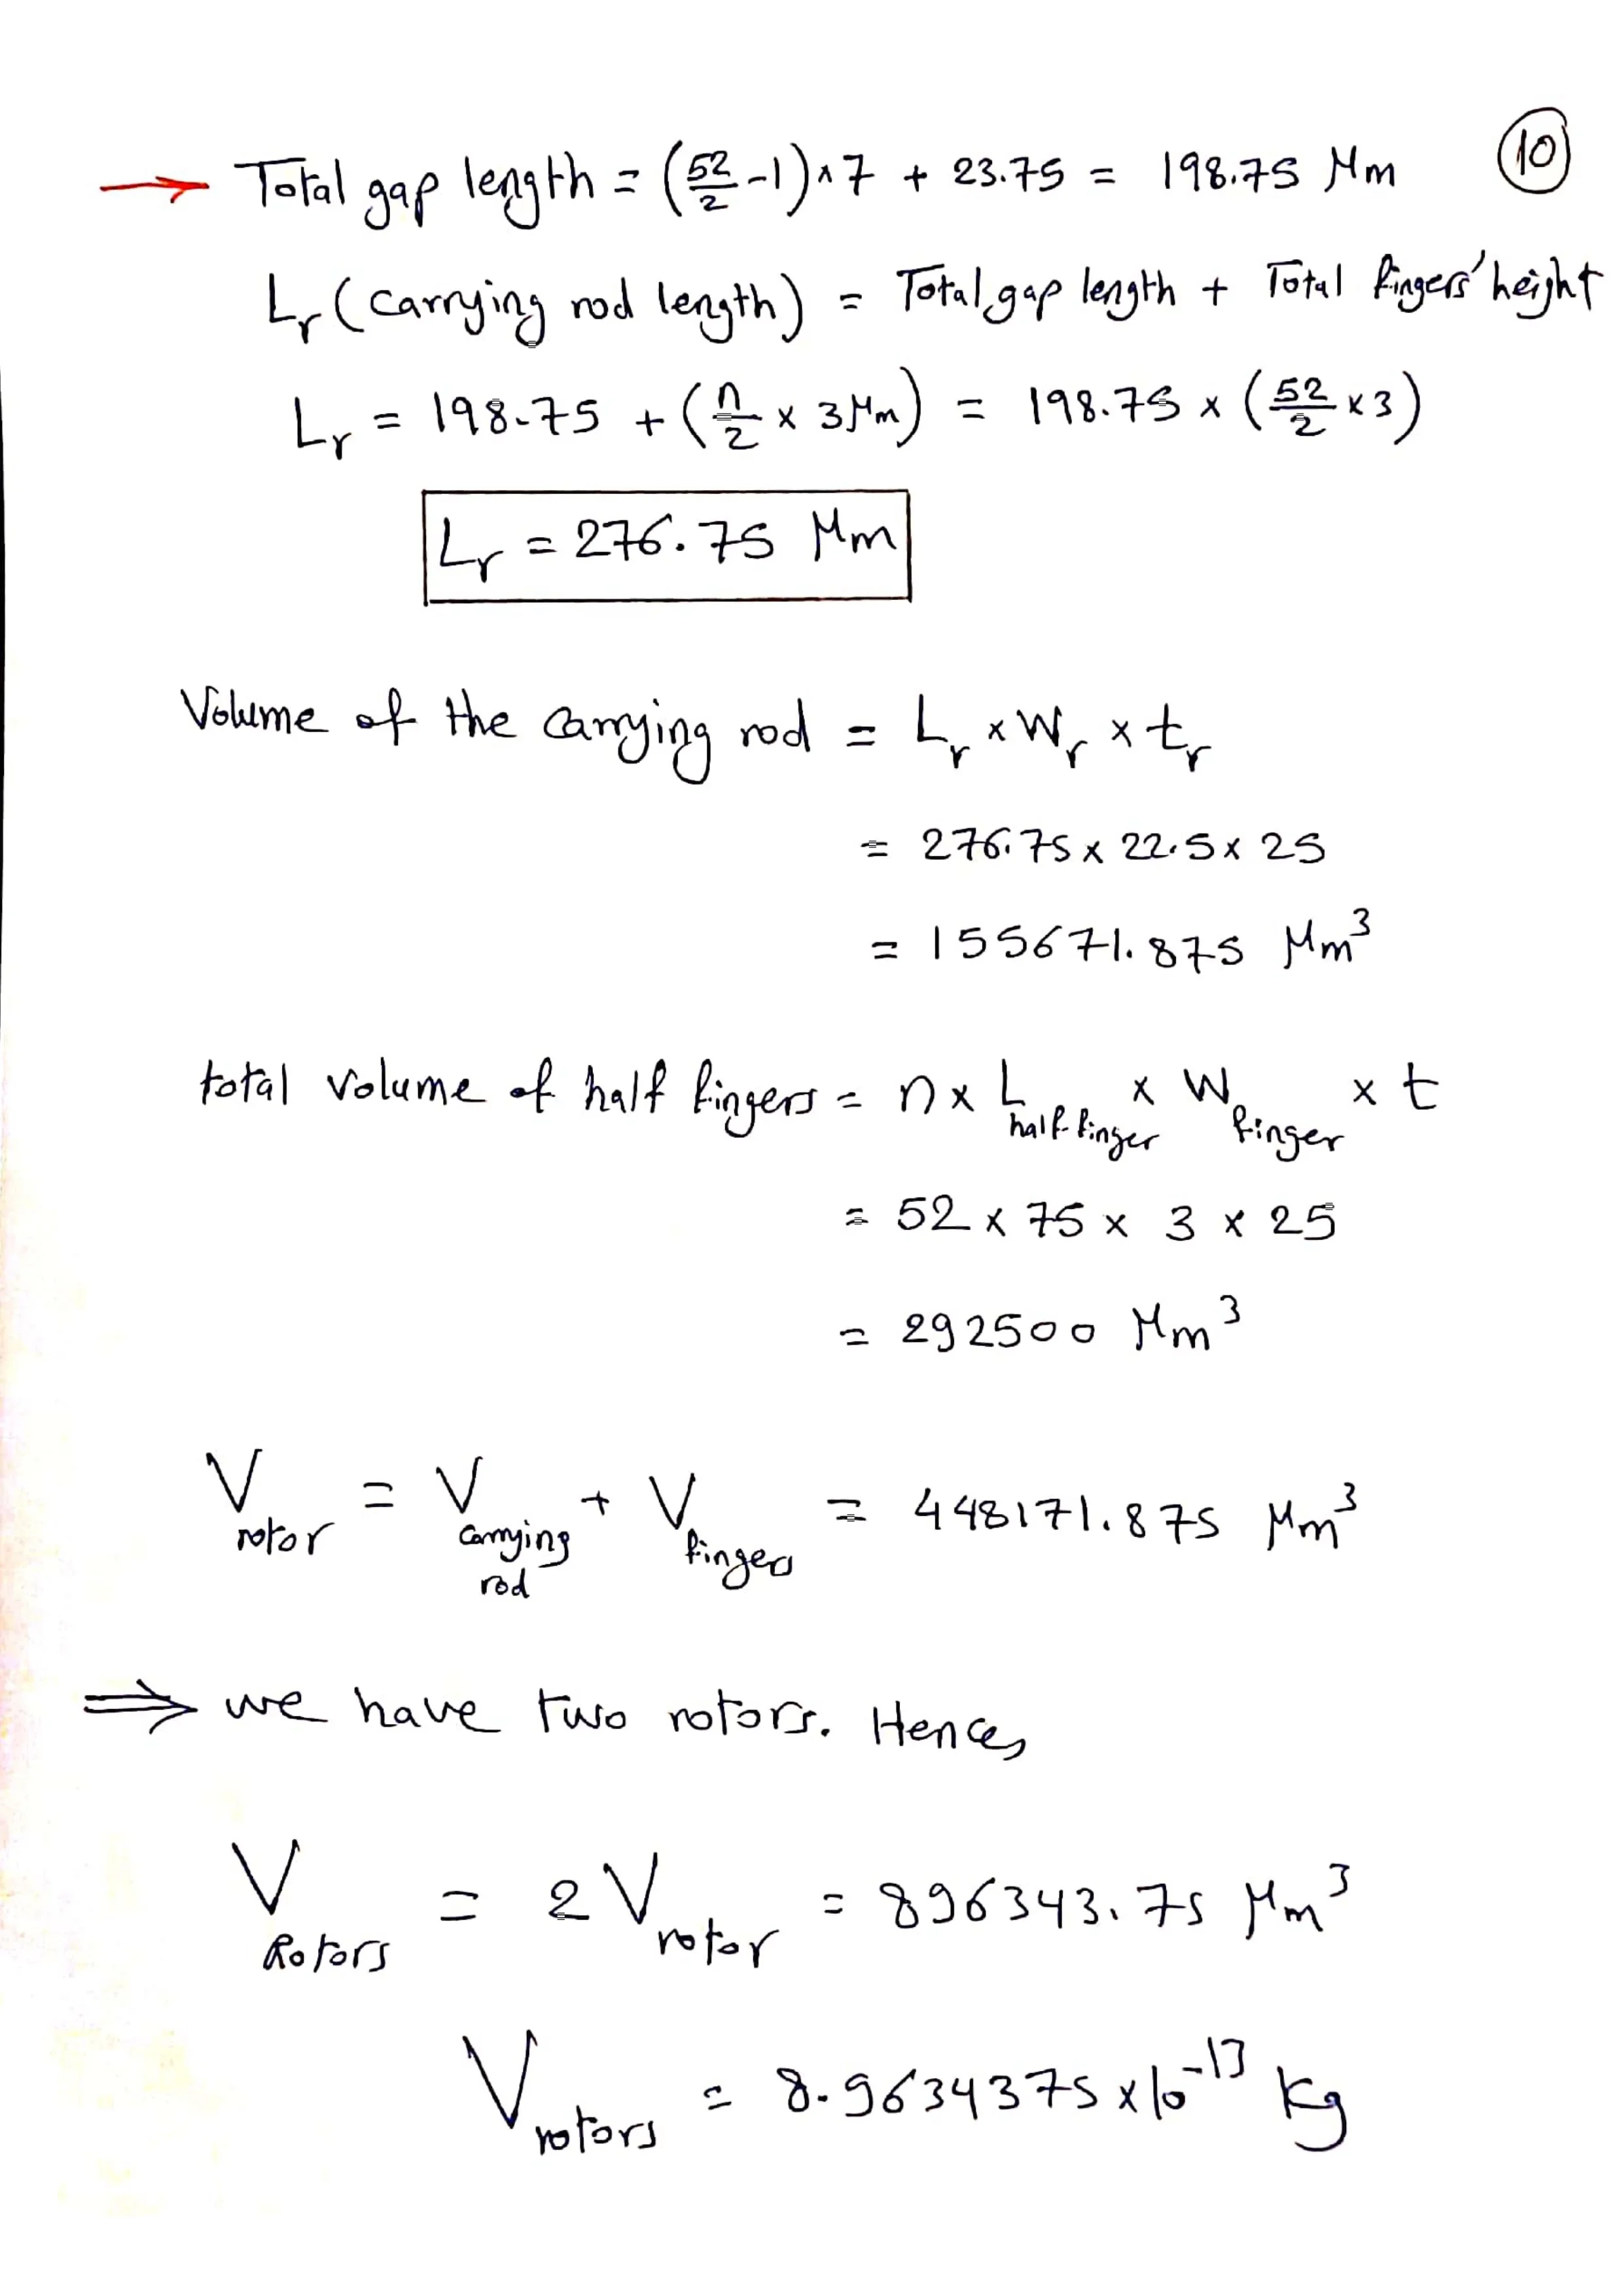 → Total gap length = (52/2 -1)×7 + 23.75 = 198.75 Mm
10
Lr (carrying rod length) = Total gap length + Total fingers' height
Lr = 198.75 + (n/2 × 3Mm) = 198.75 × (52/2 × 3)
Lr = 276.75 Mm
Volume of the carrying rod = Lr × Wr × tr
= 276.75 × 22.5 × 25
= 155671.875 Mm³
total volume of half fingers = n × L half finger × W finger × t
= 52 × 75 × 3 × 25
= 292500 Mm³
V rotor = V carrying rod + V fingers = 448171.875 Mm³
⇒ we have two rotors. Hence,
V Rotors = 2 V rotor = 896343.75 Mm³
V rotors = 8.9634375 × 10⁻¹³ Kg